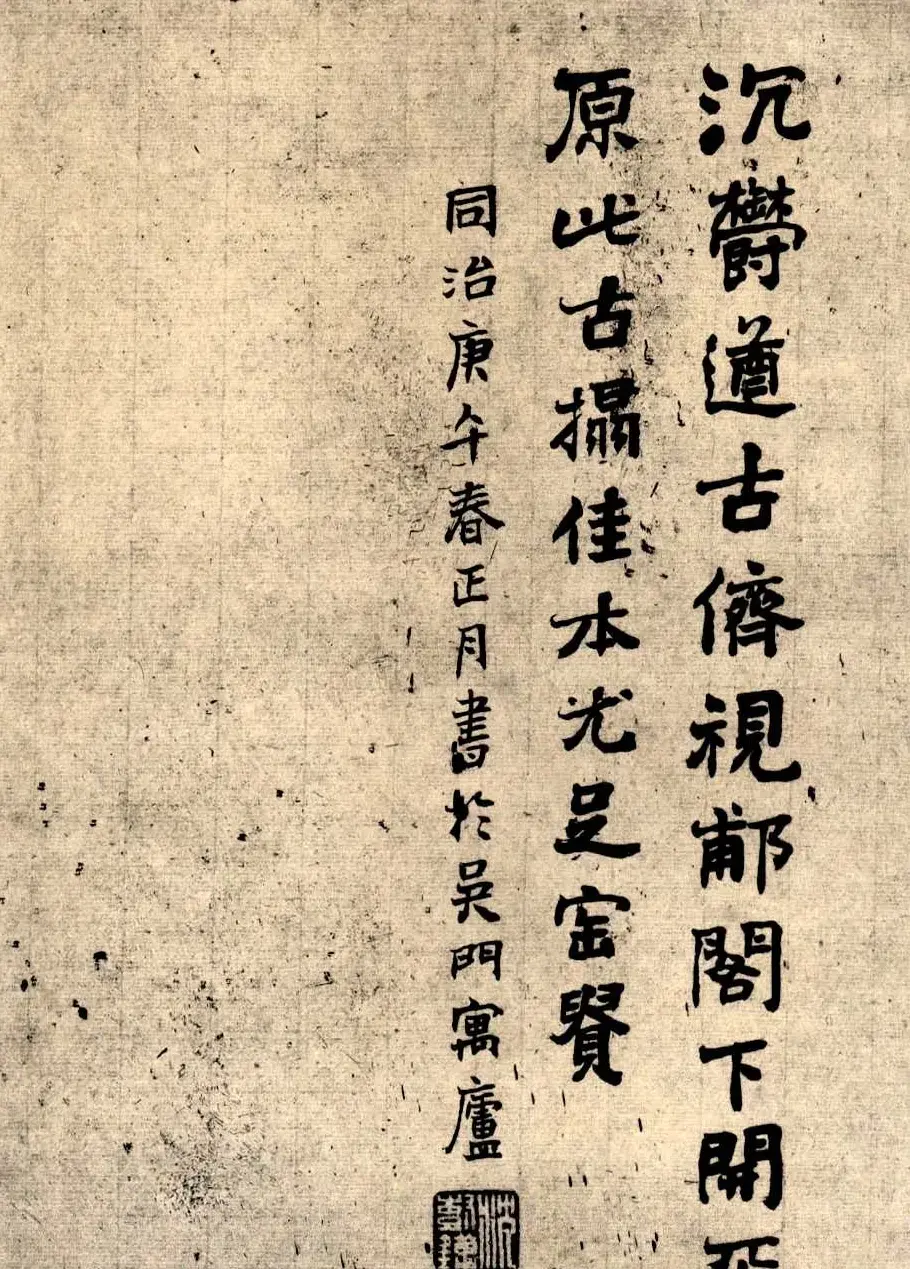 沉鬱遒古儕視郙閣下開
原此古搨佳本尤足寶貴
同治庚午春正月書於吳門寓廬